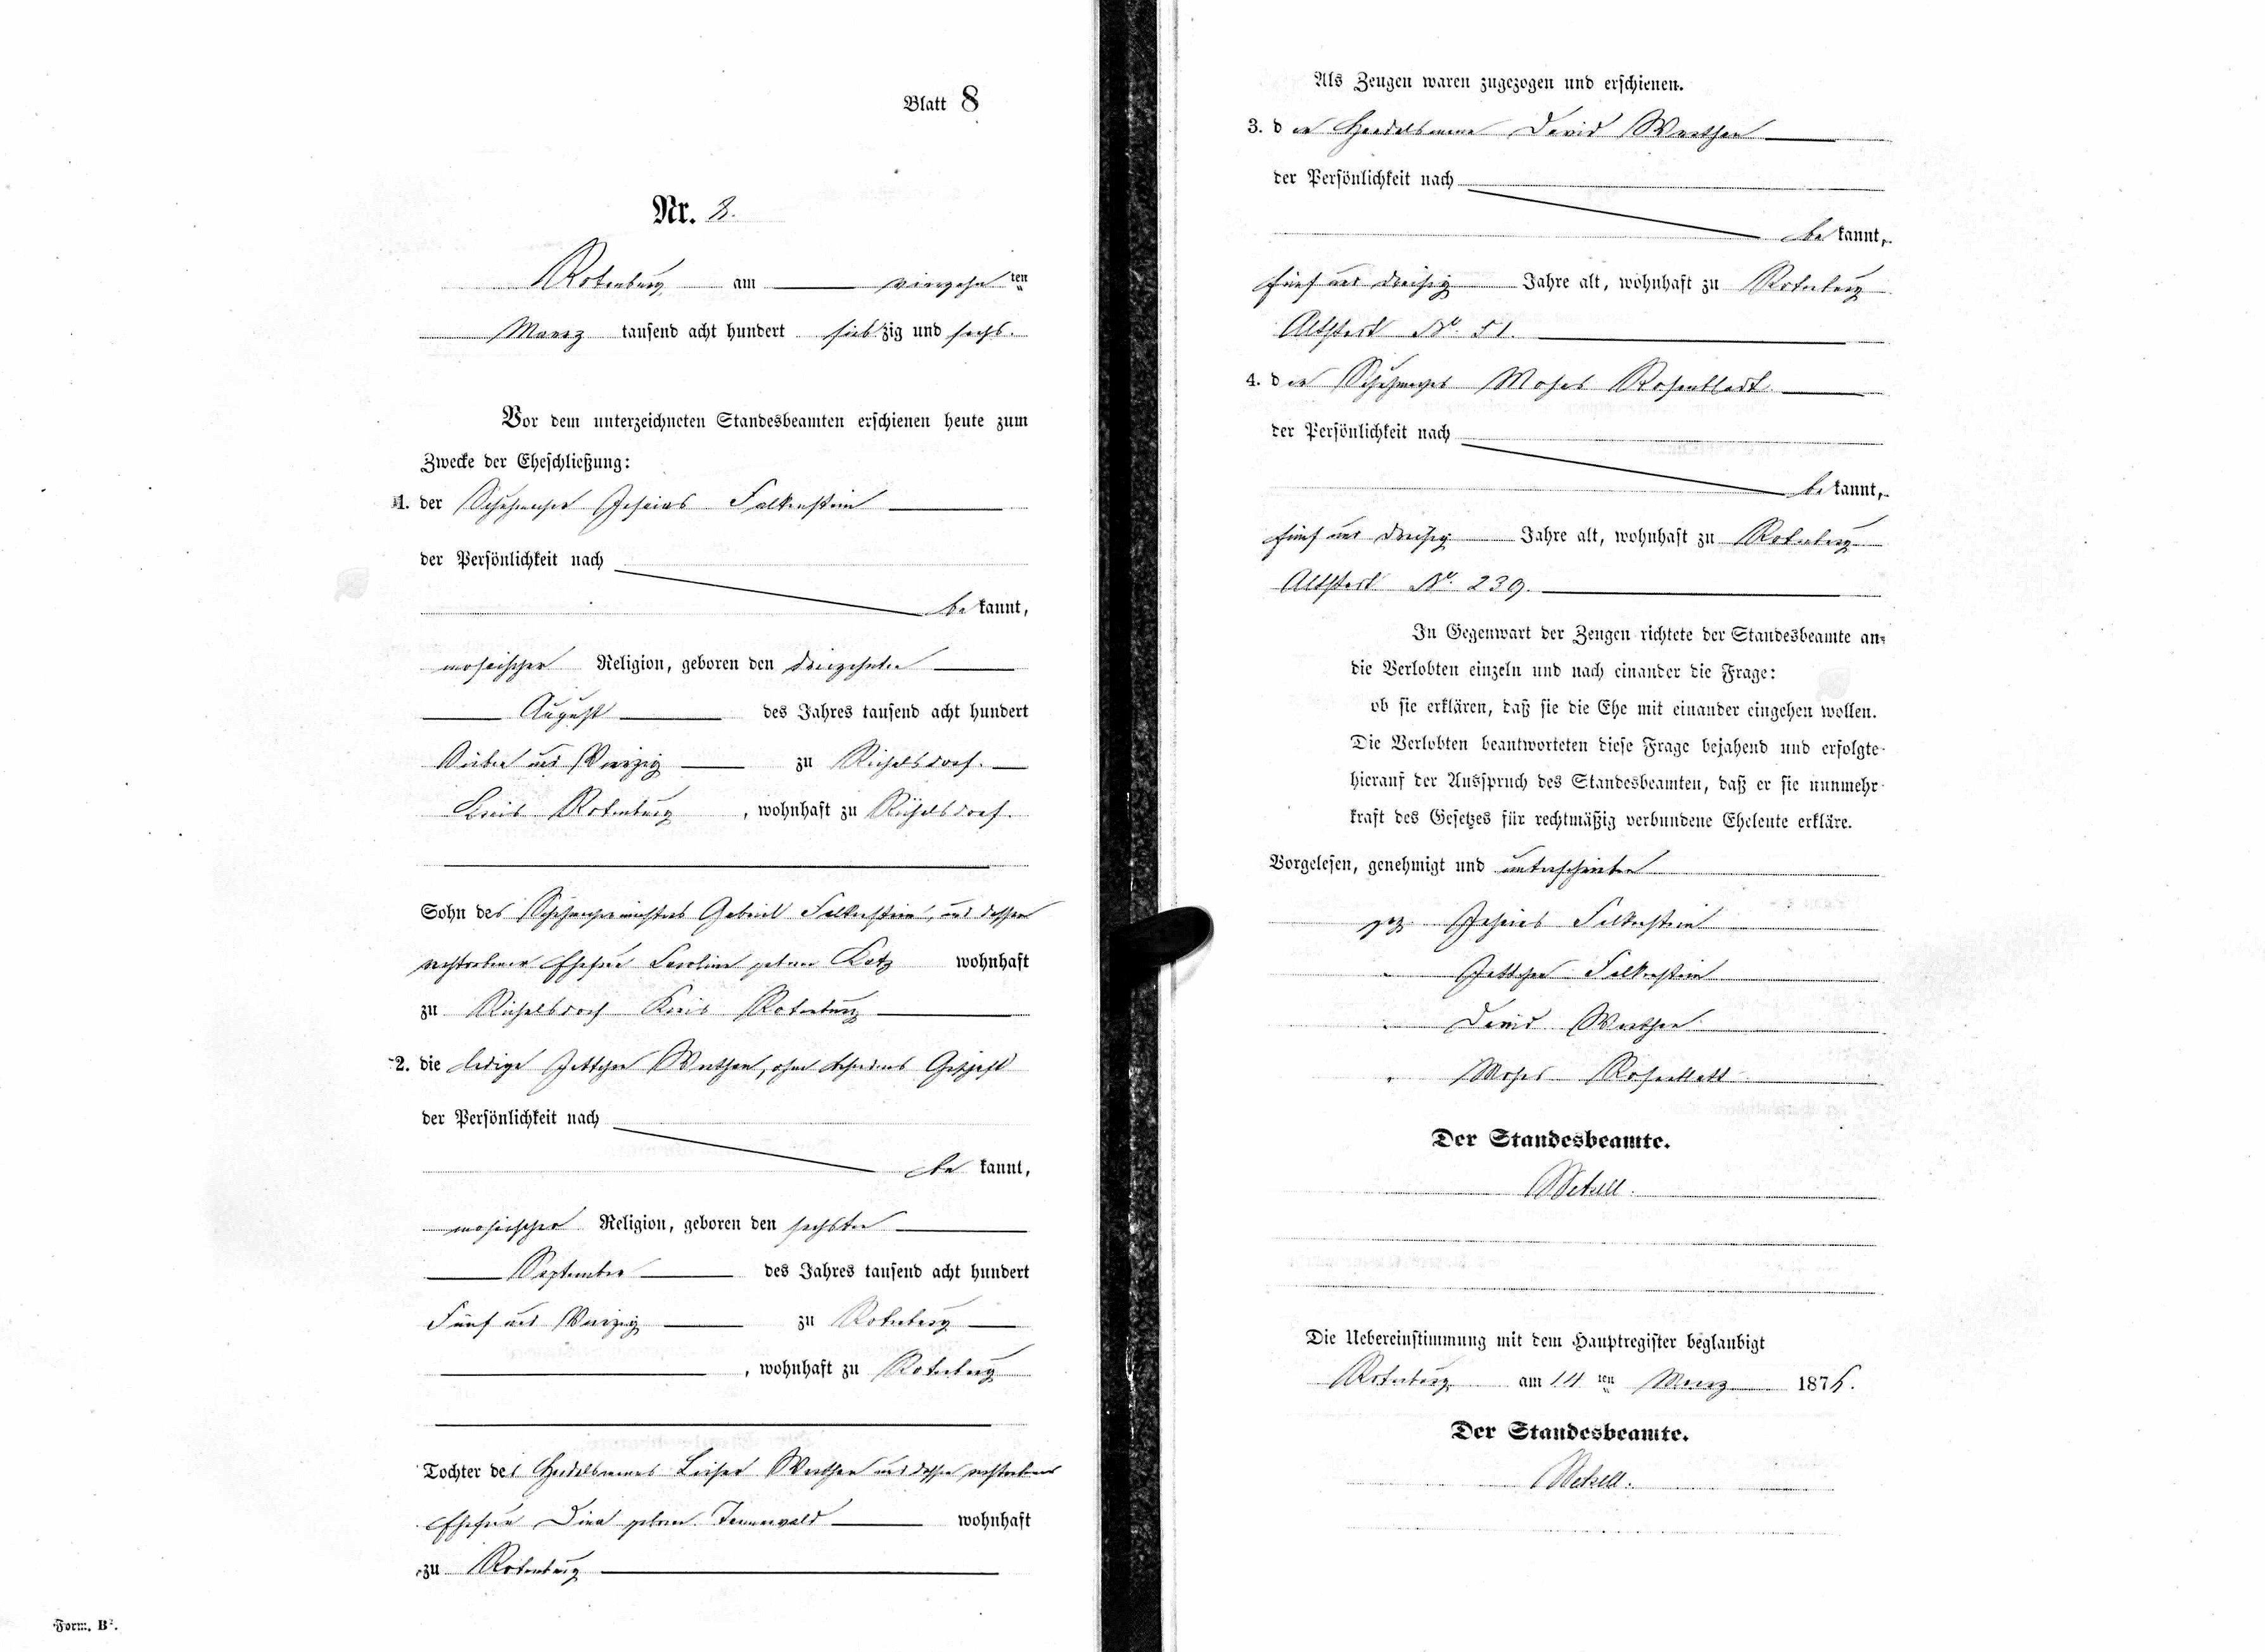 Blatt 8
Nr. 8.
Rotenburg am vierzehnten
Maerz tausend acht hundert siebzig und sechs.
Vor dem unterzeichneten Standesbeamten erschienen heute zum
Zwecke der Eheschließung:
1. der Schuhmacher Jesaias Falkenstein
der Persönlichkeit nach
bekannt,
mosaischer Religion, geboren den dreizehnten
August des Jahres tausend acht hundert
Sieben und Vierzig zu Richelsdorf.
Kreis Rotenburg, wohnhaft zu Richelsdorf.
Sohn des Schuhmachermeisters Gabriel Falkenstein, und dessen
verstorbener Ehefrau Caroline geborne Katz wohnhaft
zu Richelsdorf Kreis Rotenburg
2. die ledige Jettchen Werthan, ohne besonderes Geschäft
der Persönlichkeit nach
bekannt,
mosaischer Religion, geboren den sechsten
September des Jahres tausend acht hundert
Fünf und Vierzig zu Rotenburg
, wohnhaft zu Rotenburg
Tochter des Handelsmannes Leiser Werthan und dessen verstorbener
Ehefrau Dina geborne Tannenwald wohnhaft
zu Rotenburg
Form. B².
Als Zeugen waren zugezogen und erschienen.
3. der Handelsmann David Werthan
der Persönlichkeit nach
bekannt,
fünf und dreißig Jahre alt, wohnhaft zu Rotenburg
Altstadt No. 51.
4. der Schuhmacher Moses Rosenblatt
der Persönlichkeit nach
bekannt,
fünf und dreißig Jahre alt, wohnhaft zu Rotenburg
Altstadt No. 239.
In Gegenwart der Zeugen richtete der Standesbeamte an
die Verlobten einzeln und nach einander die Frage:
ob sie erklären, daß sie die Ehe mit einander eingehen wollen.
Die Verlobten beantworteten diese Frage bejahend und erfolgte
hierauf der Ausspruch des Standesbeamten, daß er sie nunmehr
kraft des Gesetzes für rechtmäßig verbundene Eheleute erkläre.
Vorgelesen, genehmigt und unterschrieben
gez. Jesaias Falkenstein
" Jettchen Falkenstein
" David Werthan
" Moses Rosenblatt
Der Standesbeamte.
Die Uebereinstimmung mit dem Hauptregister beglaubigt
Rotenburg am 14ten Maerz 1876.
Der Standesbeamte.